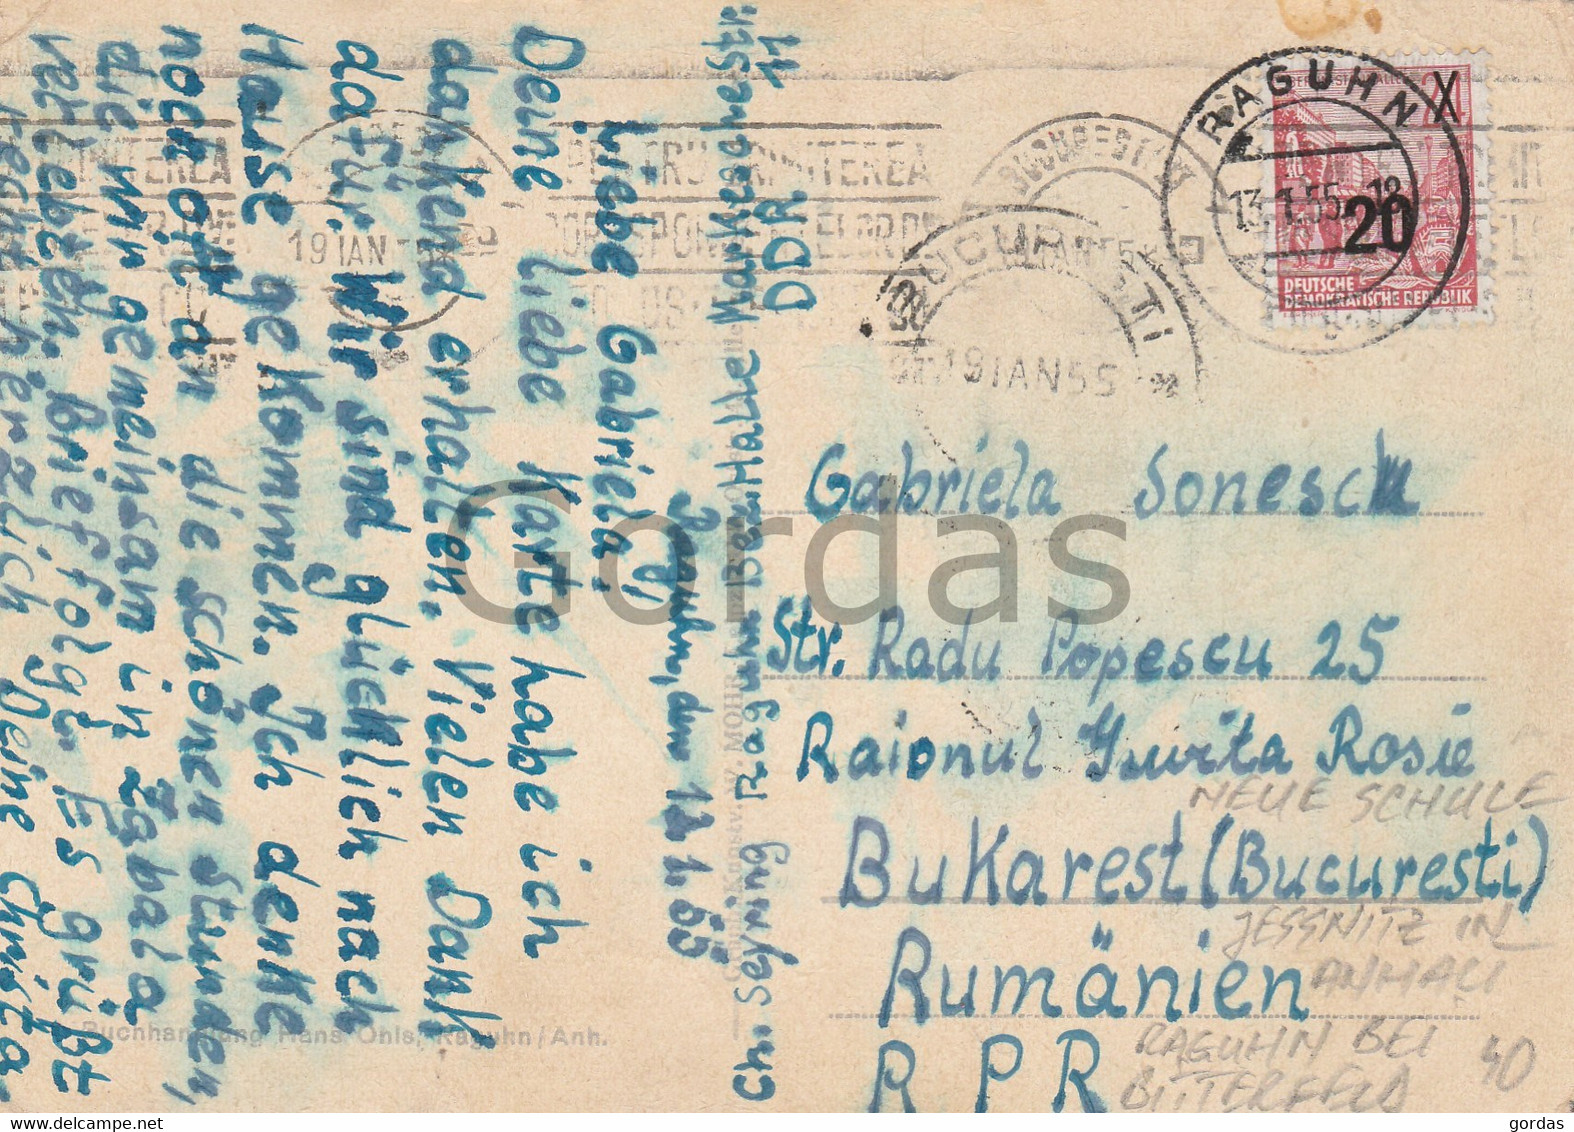 Raguhn, den 12.1.55
Liebe Gabriela!
Deine liebe Karte habe ich
dankend erhalten. Vielen Dank
dafür. Wir sind glücklich nach
Hause gekommen. Ich denke
noch oft an die schönen Stunden,
die wir gemeinsam in Zabala
verlebten. Brief folgt. Es grüßt
recht herzlich Deine Christa
Ch. Seyring Raguhn Bez. Halle Markesche Str. 11
DDR
Buchhandlung Hans Ohls, Raguhn/Anh.
RAGUHN
13.1.55.-18
24
X
20
DEUTSCHE
DEMOKRATISCHE REPUBLIK
BUCUREȘTI
19 IAN 55
19 IAN 55
PENTRU TRIMITEREA
Gabriela Sonescu
Str. Radu Popescu 25
Raionul Grivita Rosie
NEUE SCHULE
Bukarest (Bucuresti)
JESSNITZ IN
ANHALT
Rumänien
RAGUHN BEI
BITTERFELD
RPR
40
Gordas
gordas